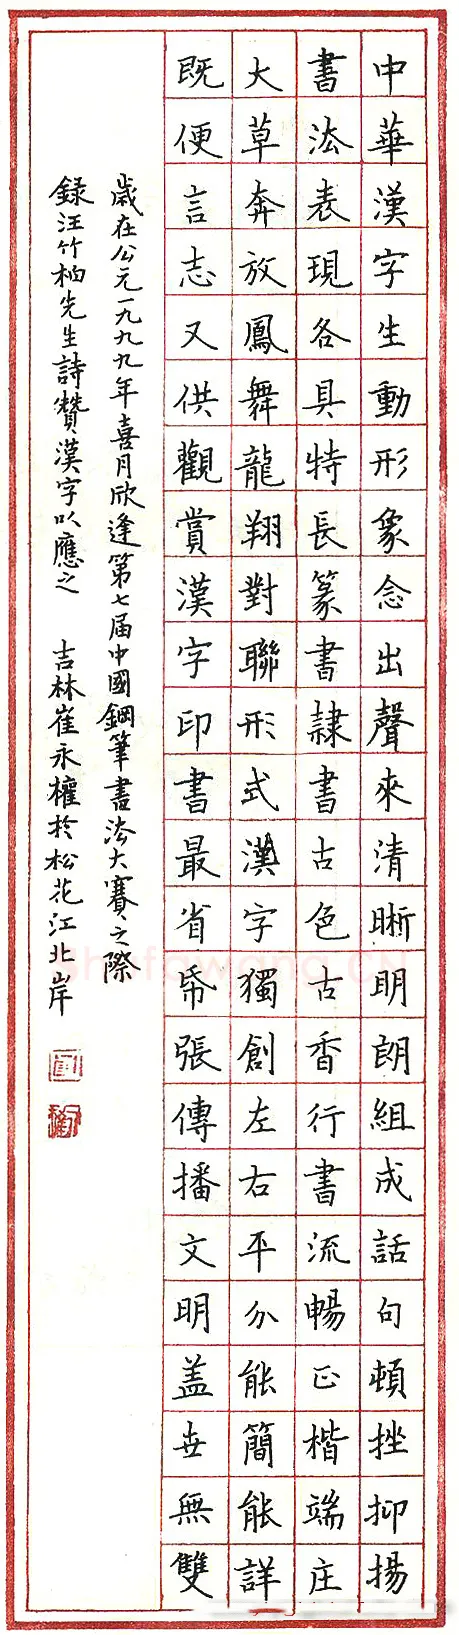 中華漢字生動形象念出聲來清晰明朗組成話句頓挫抑揚
書法表現各具特長篆書隸書古色古香行書流暢正楷端庄
大草奔放鳳舞龍翔對聯形式漢字獨創左右平分能簡能詳
既便言志又供觀賞漢字印書最省帋張傳播文明盖世無雙
歲在公元一九九九年喜月欣逢第七届中國鋼筆書法大賽之際
錄汪竹柏先生詩贊漢字以應之 吉林崔永權於松花江北岸